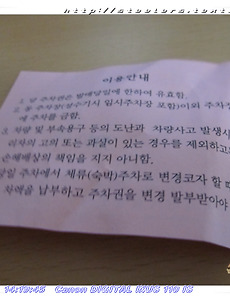 이용안내
1. 본 주차권은 발매당일에 한하여 유효함.
2. 동 주차장(성수기시 임시주차장 포함)이와 주차장
에 주차를 금함.
3. 차량 및 부속용구 등의 도난과 차량사고 발생시
리자의 고의 또는 과실이 있는 경우를 제외하고
손해배상의 책임을 지지 아니함.
당일 주차에서 체류(숙박)주차로 변경코자 할 때
차액을 납부하고 주차권을 변경 발부받아야
14:19:45 Canon DIGITAL IXUS 110 IS